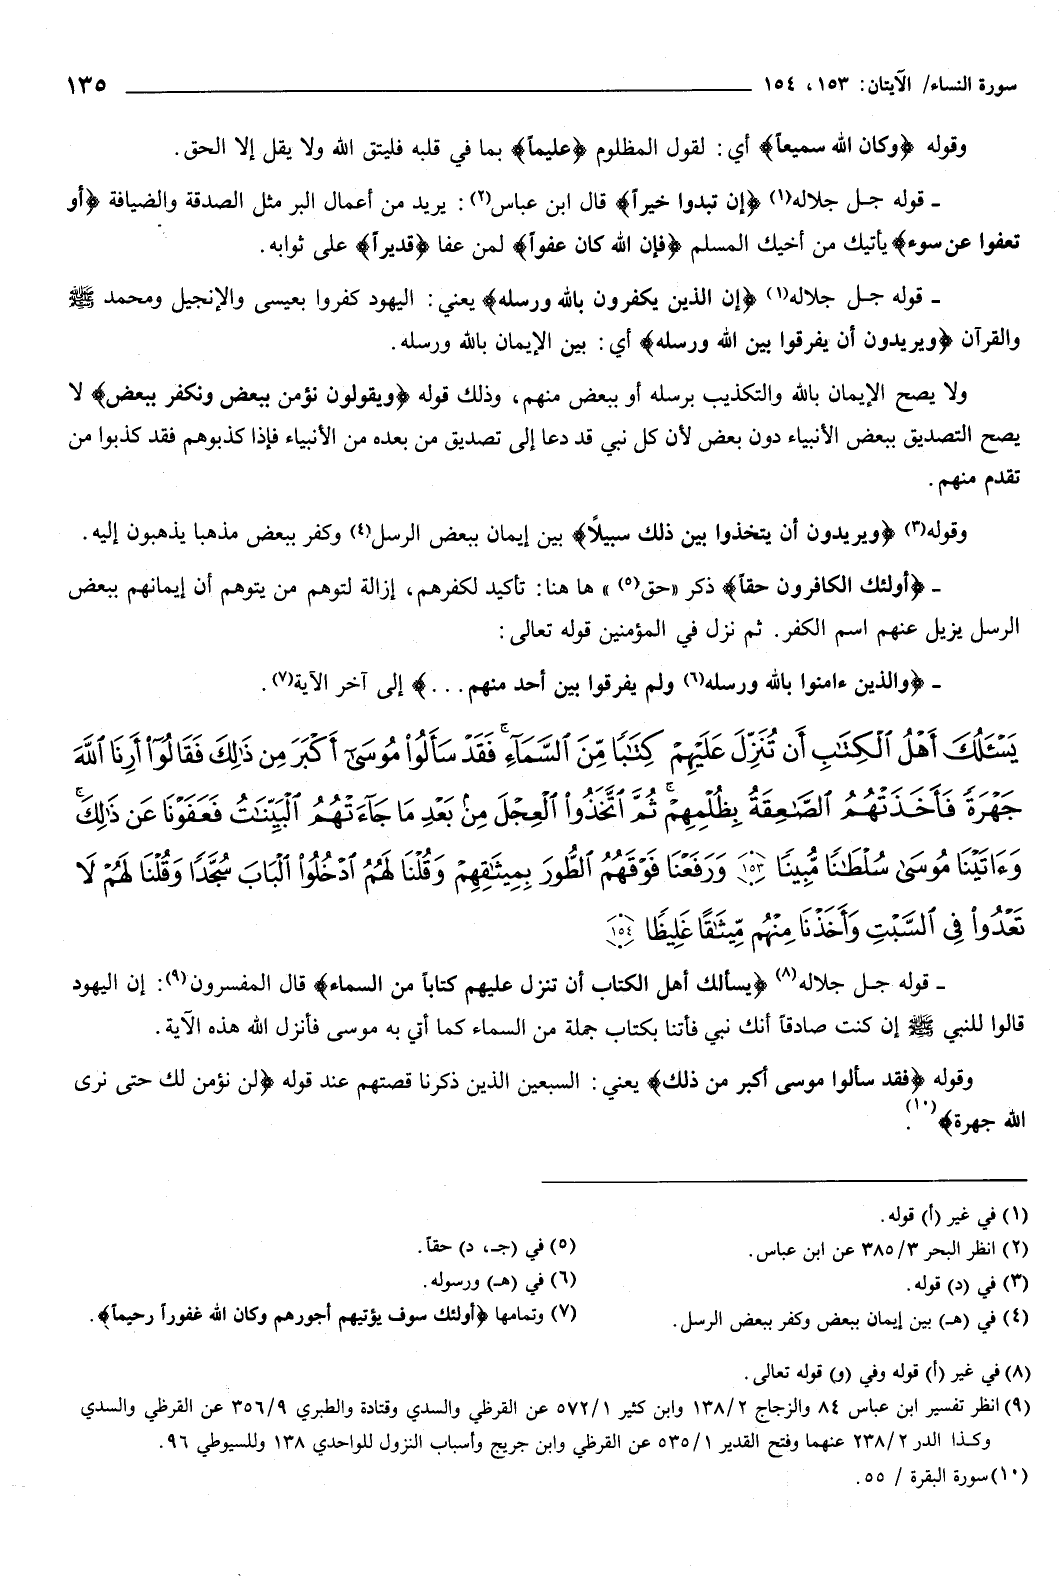 سورة النساء/ الآيتان: ١٥٣، ١٥٤ ١٣٥
وقوله ﴿وكان الله سميعاً﴾ أي: لقول المظلوم ﴿عليماً﴾ بما في قلبه فليتق الله ولا يقل إلا الحق.
ـ قوله جـل جلاله(١) ﴿إن تبدوا خيراً﴾ قال ابن عباس(٢): يريد من أعمال البر مثل الصدقة والضيافة ﴿أو
تعفوا عن سوء﴾ يأتيك من أخيك المسلم ﴿فإن الله كان عفواً﴾ لمن عفا ﴿قديراً﴾ على ثوابه.
ـ قوله جـل جلاله(١) ﴿إن الذين يكفرون بالله ورسله﴾ يعني: اليهود كفروا بعيسى والإنجيل ومحمد ﷺ
والقرآن ﴿ويريدون أن يفرقوا بين الله ورسله﴾ أي: بين الإيمان بالله ورسله.
ولا يصح الإيمان بالله والتكذيب برسله أو ببعض منهم، وذلك قوله ﴿ويقولون نؤمن ببعض ونكفر ببعض﴾ لا
يصح التصديق ببعض الأنبياء دون بعض لأن كل نبي قد دعا إلى تصديق من بعده من الأنبياء فإذا كذبوهم فقد كذبوا من
تقدم منهم.
وقوله(٣) ﴿ويريدون أن يتخذوا بين ذلك سبيلاً﴾ بين إيمان ببعض الرسل(٤) وكفر ببعض مذهبا يذهبون إليه.
ـ ﴿أولئك الكافرون حقاً﴾ ذكر «حق(٥)» ها هنا: تأكيد لكفرهم، إزالة لتوهم من يتوهم أن إيمانهم ببعض
الرسل يزيل عنهم اسم الكفر. ثم نزل في المؤمنين قوله تعالى:
ـ ﴿والذين ءامنوا بالله ورسله(٦) ولم يفرقوا بين أحد منهم...﴾ إلى آخر الآية(٧).
يَسْـَٔلُكَ أَهْلُ ٱلْكِتَٰبِ أَن تُنَزِّلَ عَلَيْهِمْ كِتَٰبًا مِّنَ ٱلسَّمَآءِ ۚ فَقَدْ سَأَلُوا۟ مُوسَىٰٓ أَكْبَرَ مِن ذَٰلِكَ فَقَالُوٓا۟ أَرِنَا ٱللَّهَ
جَهْرَةً فَأَخَذَتْهُمُ ٱلصَّٰعِقَةُ بِظُلْمِهِمْ ۚ ثُمَّ ٱتَّخَذُوا۟ ٱلْعِجْلَ مِنۢ بَعْدِ مَا جَآءَتْهُمُ ٱلْبَيِّنَٰتُ فَعَفَوْنَا عَن ذَٰلِكَ ۚ
وَءَاتَيْنَا مُوسَىٰ سُلْطَٰنًا مُّبِينًا ﴿١٥٣﴾ وَرَفَعْنَا فَوْقَهُمُ ٱلطُّورَ بِمِيثَٰقِهِمْ وَقُلْنَا لَهُمُ ٱدْخُلُوا۟ ٱلْبَابَ سُجَّدًا وَقُلْنَا لَهُمْ لَا
تَعْدُوا۟ فِى ٱلسَّبْتِ وَأَخَذْنَا مِنْهُم مِّيثَٰقًا غَلِيظًا ﴿١٥٤﴾
ـ قوله جـل جلاله(٨) ﴿يسألك أهل الكتاب أن تنزل عليهم كتاباً من السماء﴾ قال المفسرون(٩): إن اليهود
قالوا للنبي ﷺ إن كنت صادقاً أنك نبي فأتنا بكتاب جملة من السماء كما أتي به موسى فأنزل الله هذه الآية.
وقوله ﴿فقد سألوا موسى أكبر من ذلك﴾ يعني: السبعين الذين ذكرنا قصتهم عند قوله ﴿لن نؤمن لك حتى نرى
الله جهرة﴾(١٠).
(١) في غير (أ) قوله.
(٢) انظر البحر ٣/ ٣٨٥ عن ابن عباس.
(٣) في (د) قوله.
(٤) في (هـ) بين إيمان ببعض وكفر ببعض الرسل.
(٥) في (جـ، د) حقاً.
(٦) في (هـ) ورسوله.
(٧) وتمامها ﴿أولئك سوف يؤتيهم أجورهم وكان الله غفوراً رحيماً﴾.
(٨) في غير (أ) قوله وفي (و) قوله تعالى.
(٩) انظر تفسير ابن عباس ٨٤ والزجاج ٢/ ١٣٨ وابن كثير ١/ ٥٧٢ عن القرظي والسدي وقتادة والطبري ٩/ ٣٥٦ عن القرظي والسدي
وكـذا الدر ٢/ ٢٣٨ عنهما وفتح القدير ١/ ٥٣٥ عن القرظي وابن جريج وأسباب النزول للواحدي ١٣٨ وللسيوطي ٩٦.
(١٠) سورة البقرة / ٥٥.